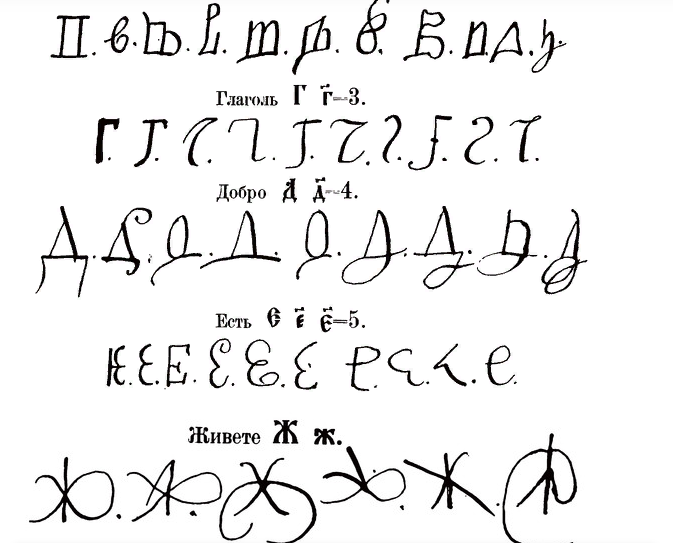 Глаголь Г г҃=3.
Г. Г. Г. Г. Г. Г. Г. Г. Г. Г.
Добро Д д҃=4.
Д. Д. Д. Д. Д. Д. Д. Д. Д
Есть Є є҃ є҃=5.
Е. Е. Е. Е. Е. Е Е. Е. Е. Е.
Живете Ж ж.
Ж. Ж. Ж. Ж. Ж. Ж